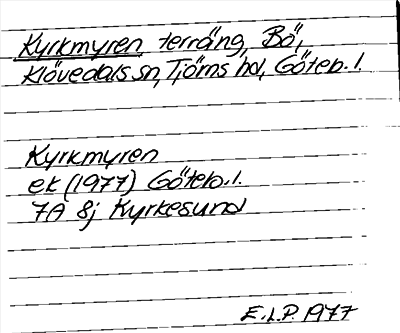 Kyrkmyren, terräng, Bö,
Klövedals sn, Tjörns hd, Göteb. l.
Kyrkmyren
ek (1977) Göteb. l.
7A 8j Kyrkesund
E.L.P. 1977